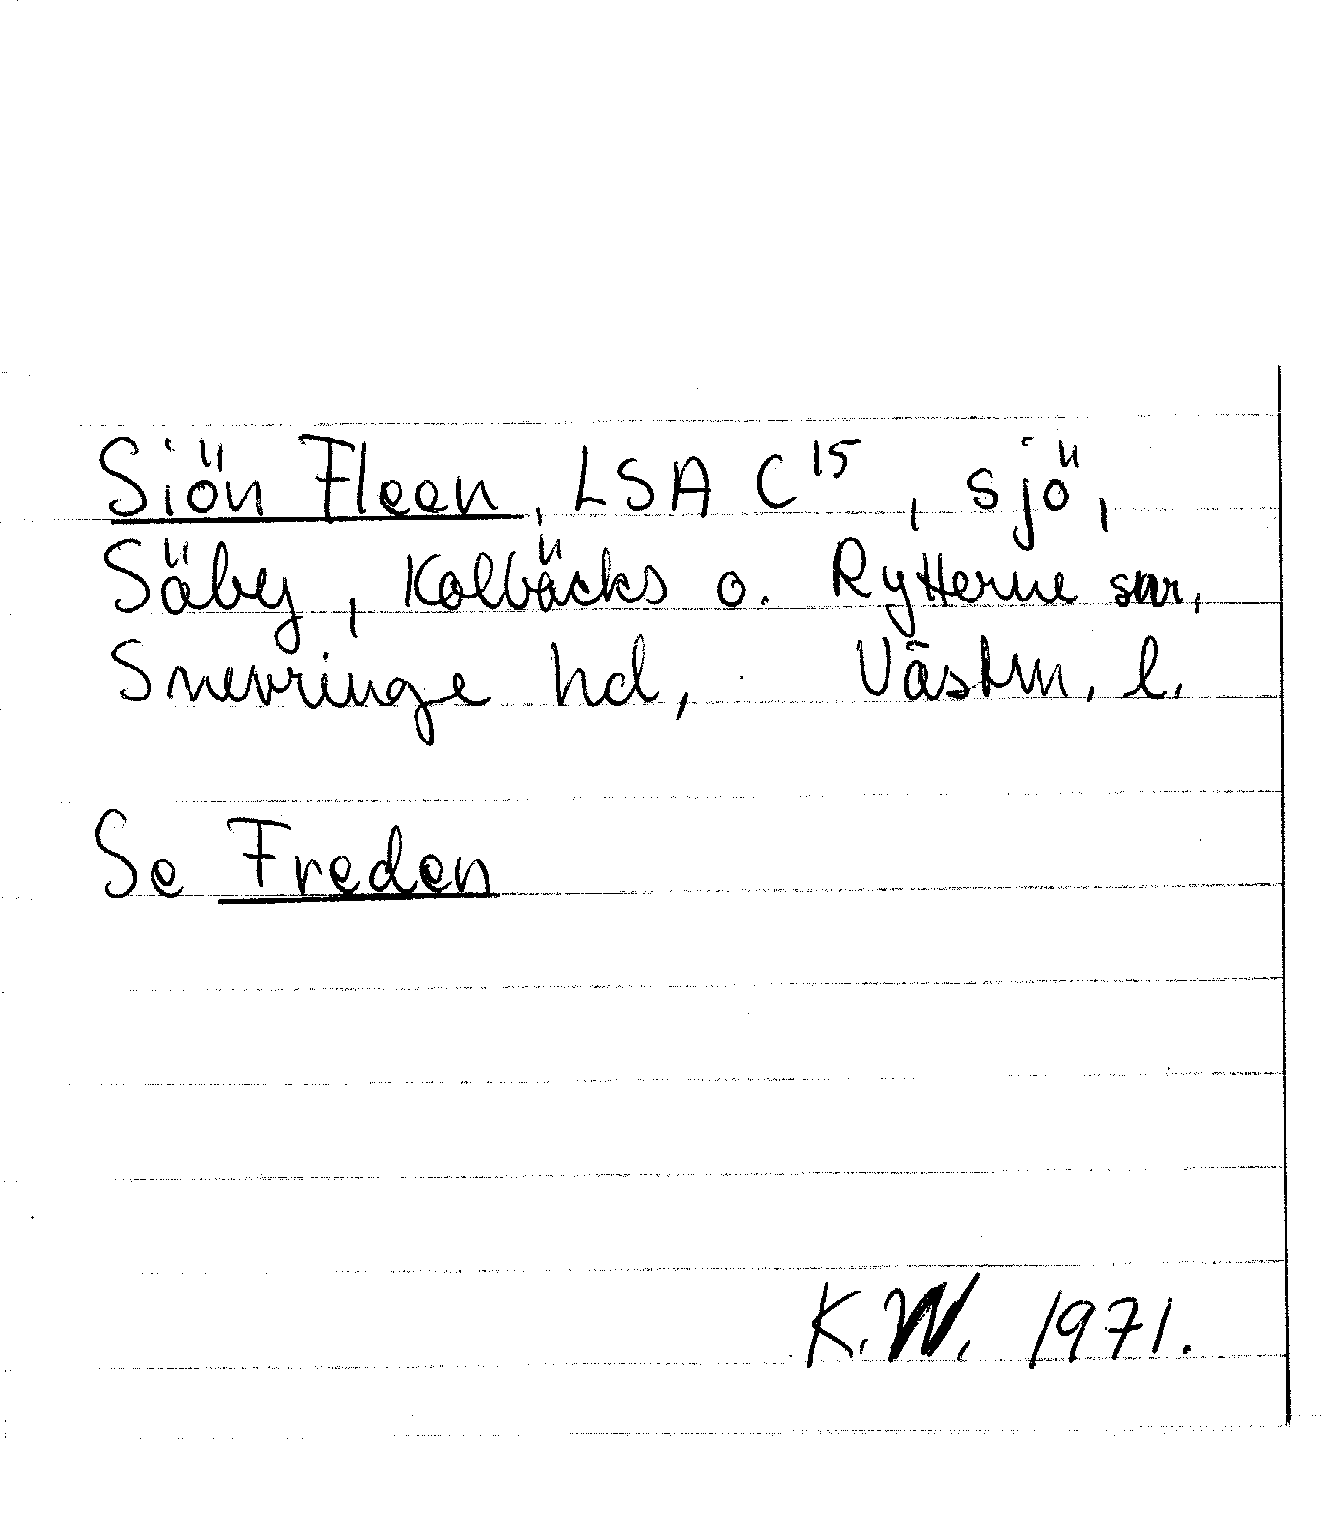 Siön Fleen, LSA C¹⁵, sjö,
Säby, Kolbäcks o. Rytterne snr,
Snevringe hd, Västm. l.
Se Freden
K.W. 1971.